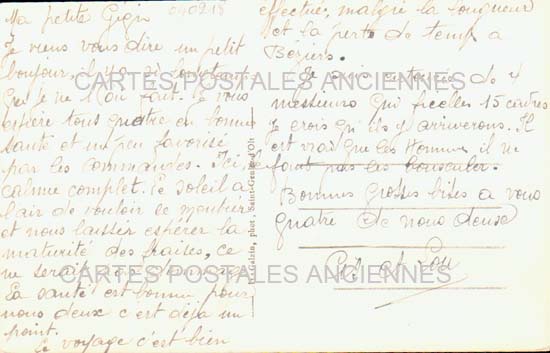 Ma petite Gigi
040218
Je viens vous dire un petit
bonjour, il y a si longtemps
que je ne l'ai fait. Je vous
espère tous quatre en bonne
santé et un peu favorisé
par les commandes. Ici, le
calme complet. Le soleil a
l'air de vouloir se montrer
et nous laisser espérer la
maturité des fraises, ce
ne serait pas dommage
La santé est bonne pour
nous deux c'est déjà un
point.
Le voyage c'est bien
effectué, malgré la longueur
et la perte de temps a
Béziers.
Je suis entourée de 4
messieurs qui ficelles 15 cartes
Je crois qu'ils y arriverons. Il
est vrai que les hommes il ne
faut pas les bousculer.
Bonnes grosses bises a vous
quatre de nous deux
et Lou
phot., Saint-Geniez-d'Olt
CARTES POSTALES ANCIENNES
CARTES POSTALES ANCIENNES